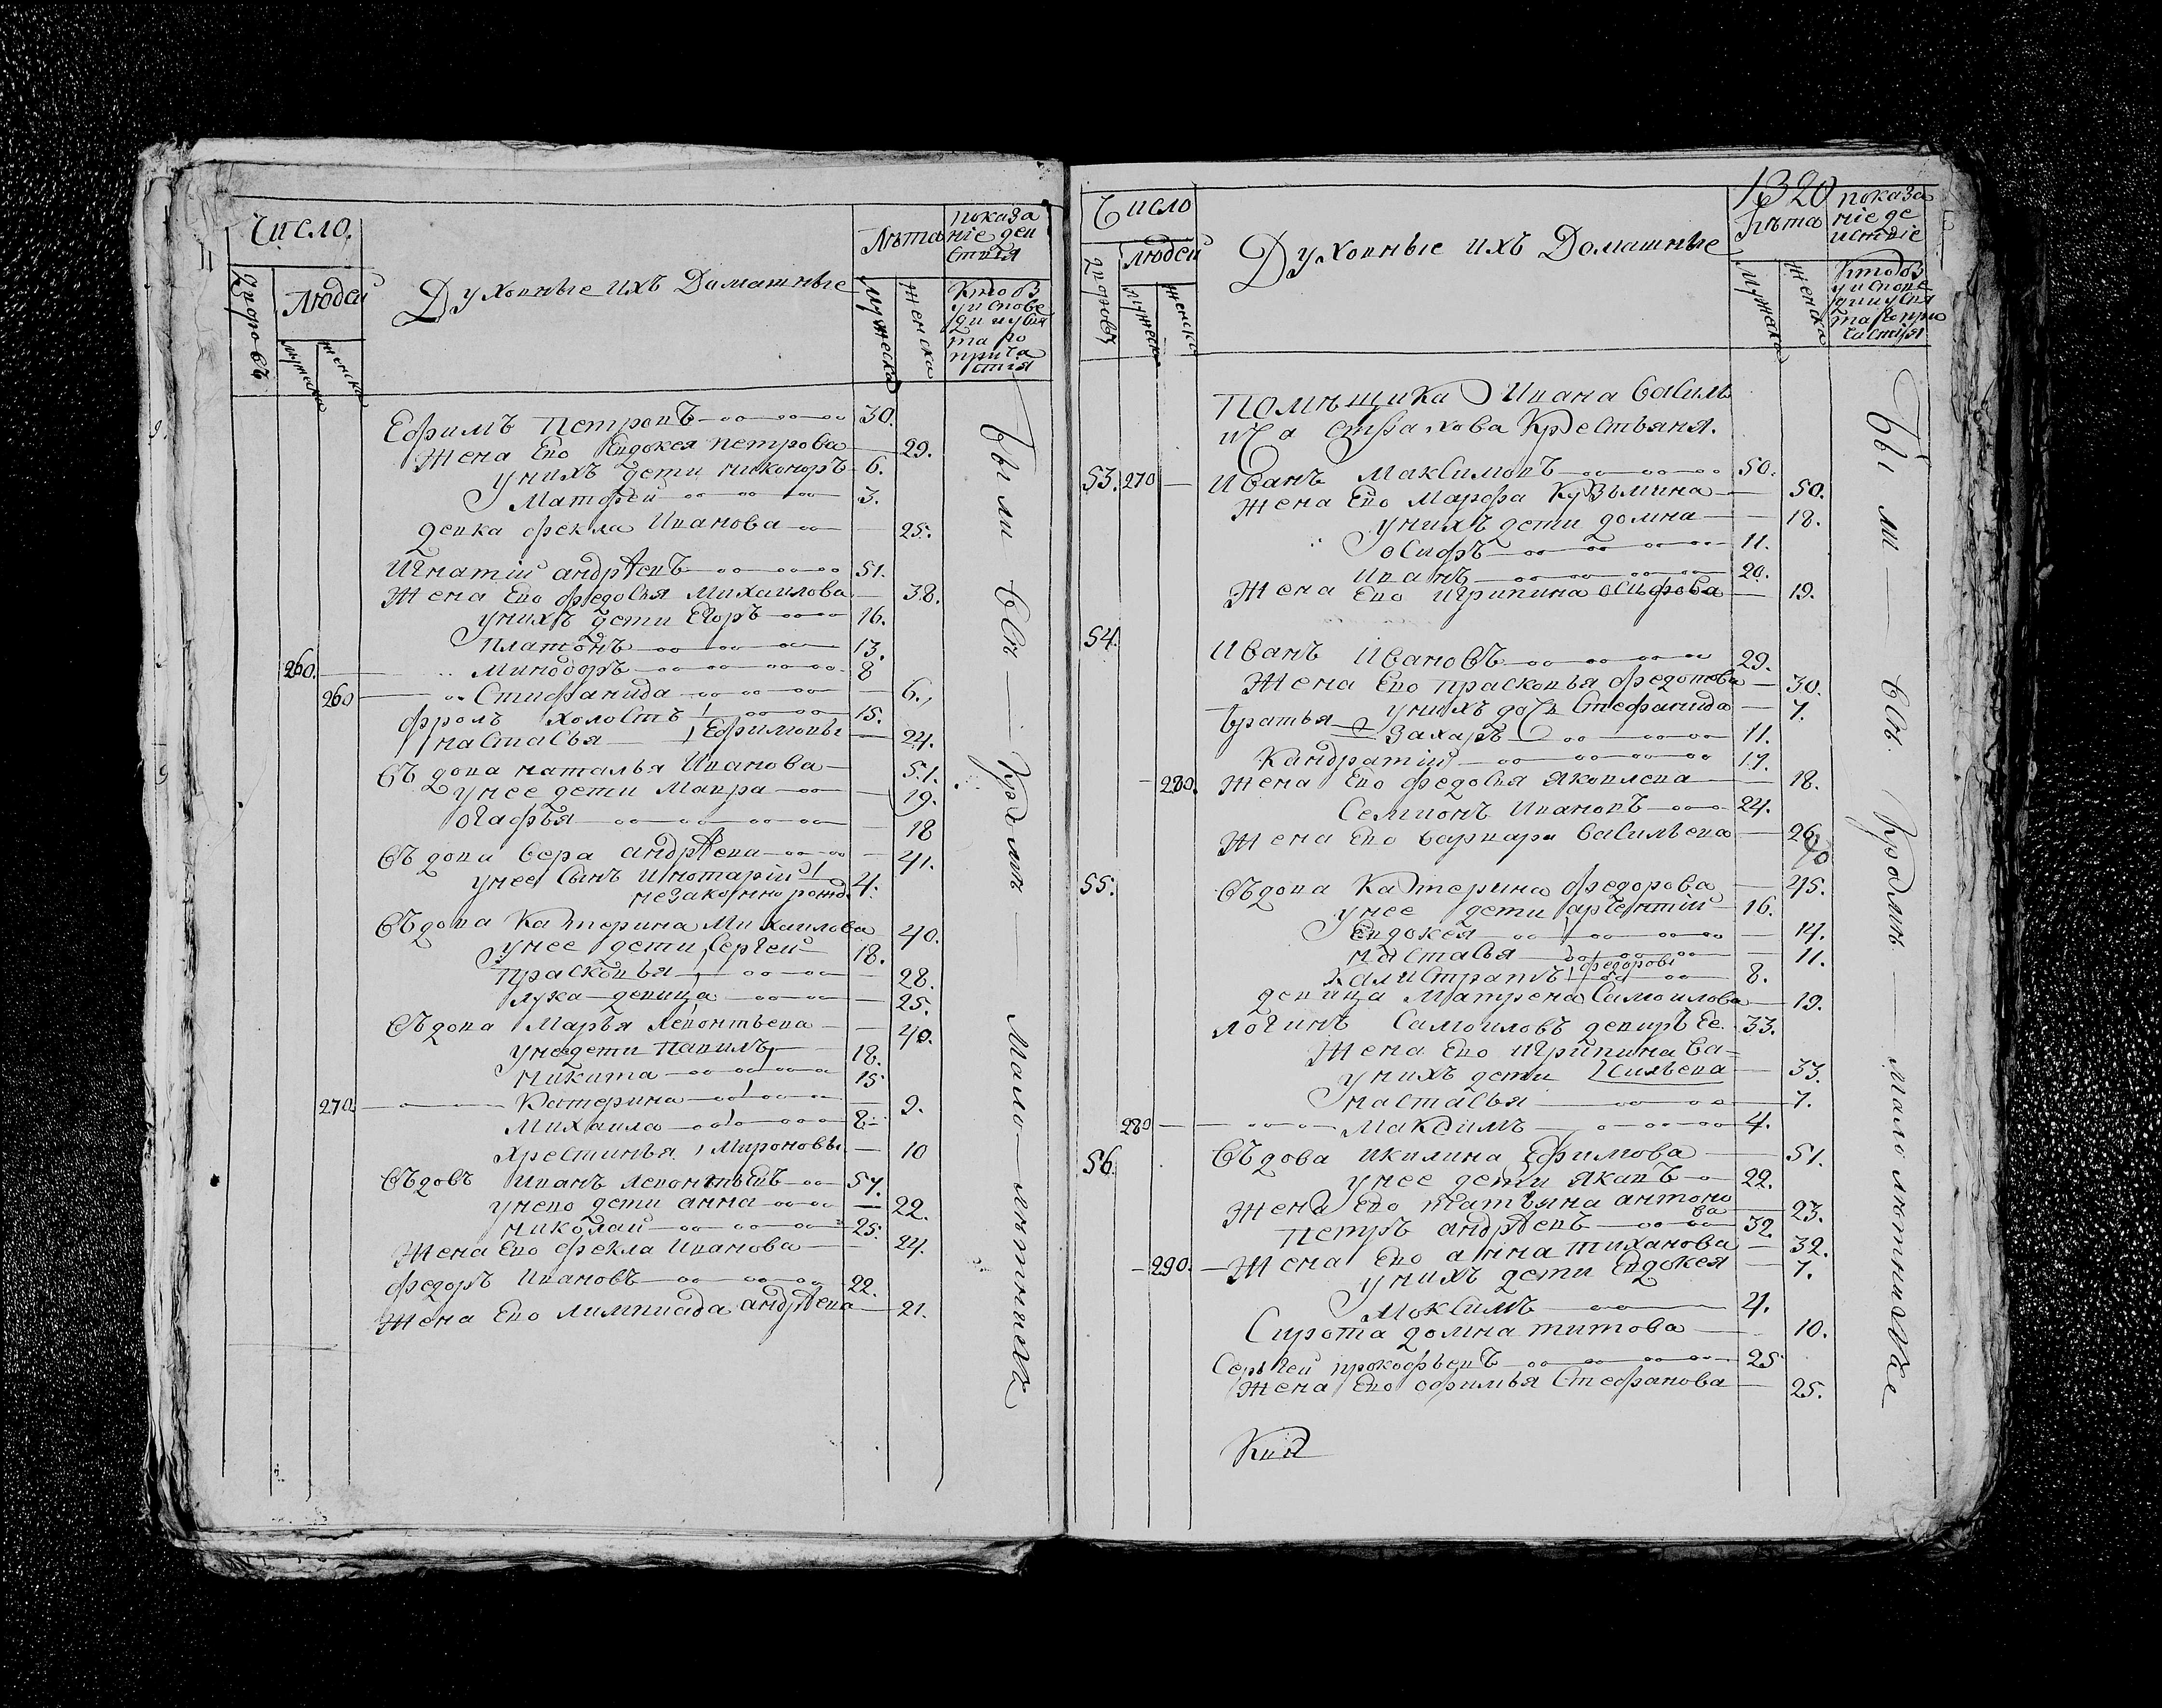 Число
Лѣта
показа
ніе деи
ствія
дворовъ
Людей
мужеска
женска
Духовные ихъ Домашные
мужеска
женска
Кто въ
у исповѣ
ди и у свя
та го
прича
стія
Ефимъ Петровъ 30.
Жена Ево Евдокея Петрова 29.
У нихъ дети никоноръ 6.
Матфей 3.
девка фекла Иванова 25.
Игнатій андрѣевъ 51.
Жена Ево федосья Михаилова 38.
У нихъ дети Егоръ 16.
Платонъ 13.
260. Минодоръ 8
260 Стифанида 6.
фролъ холостъ 15.
настасья Ефимовы 24.
Въдова наталья Иванова 51.
У нее дети Мавра 19.
огафья 18
Въдова Вера андрѣева 41.
У нее Сынъ Игнотарій 4.
незаконно рожд
Въдова Катерина Михаилова 40.
У нее дети Сергей 18.
Прасковья 28.
лукa девица 25.
Въдова Марья левонтьева 40.
У нее дети Павилъ 18.
никита 15
270. Катерина 9.
Михаила 8
Хрестинья Мироновы 10
Въдовъ Иванъ левонтьевъ 57.
У нево дети анна 22.
николай 25.
Жена Ево фекла Иванова 24.
федоръ Ивановъ 22.
Жена Ево лимпиада андрѣева 21.
Были Все Кромѣ Мало лѣтныхъ
1320
Число
Лѣта
показа
ніе де
иствіе
дворовъ
Людей
мужеска
женска
Духовные ихъ Домашные
мужеска
женска
Кто въ
у испове
ди и у свя
та го при
частія
Помѣщика Ивана Василь
ича Страхова Крестьяня.
53. 270 Иванъ Максимовъ 50.
Жена Ево Марфа Кузьмина 50.
У нихъ дети домна 18.
осифъ 11.
Иванъ 20.
Жена Ево игрипина осифова 19.
54.
Иванъ Ивановъ 29.
Жена Ево прасковья федотова 30.
У нихъ дочь Стефанида 7.
братья Захаръ 11.
Кандратій 17.
280. Жена Ево федосья яковлева 18.
Семионъ Ивановъ 24.
Жена Ево варвара васильева 26
55. Въдова Катерина федорова 45.
У нее дети арсентій 16.
Евдокея 14.
настасья 11.
Калистратъ федоровы 8.
девица Матрена Самоилова 19.
логинъ Самоиловъ девиръ Ее. 33.
Жена Ево игрипина Ва=
сильева 33.
У нихъ дети
настасья 7.
280 Максимъ 4.
56. Въдова икилина Ефимова 51.
У нее дети яковъ 22.
Жена Ево татьяна антоно
ва 23.
Петръ андрѣевъ 32.
290. Жена Ево анна тиханова 32.
У нихъ дети Евдокея 7.
Моксимъ 4.
Сирота домна титова 10.
Серьгей прокофьевъ 25
Жена Ево офимья Стефанова 25.
Были Все Кромѣ Мало лѣтныхъ же